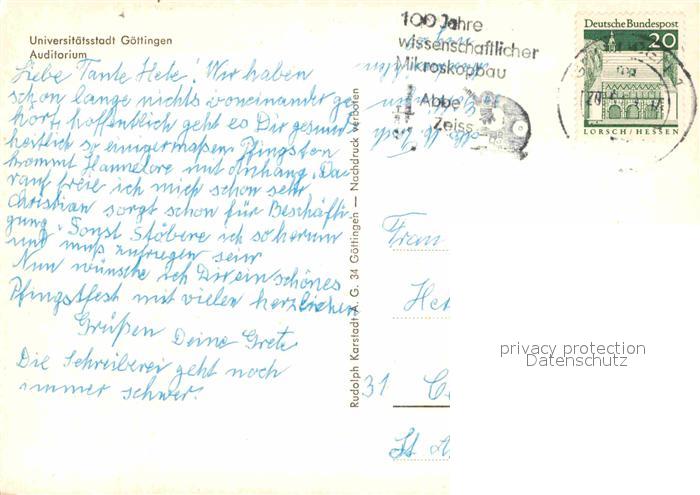 Universitätsstadt Göttingen
Auditorium
Liebe Tante Hete! Wir haben
schon lange nichts voneinander ge-
hört, hoffentlich geht es Dir gesund-
heitlich so einigermaßen. Pfingsten
kommt Hannelore mit Anhang. Da-
rauf freue ich mich schon sehr.
Christian sorgt schon für Beschäfti-
gung. Sonst stöbere ich so herum
und muß zufrieden sein.
Nun wünsche ich Dir ein schönes
Pfingstfest mit vielen herzlichen
Grüßen Deine Grete
Die Schreiberei geht noch
immer schwer.
Rudolph Karstadt A. G. 34 Göttingen — Nachdruck verboten
100 Jahre
wissenschaftlicher
Mikroskopbau
Abbe
Zeiss
Deutsche Bundespost
20
LORSCH/HESSEN
Frau
31
privacy protection
Datenschutz